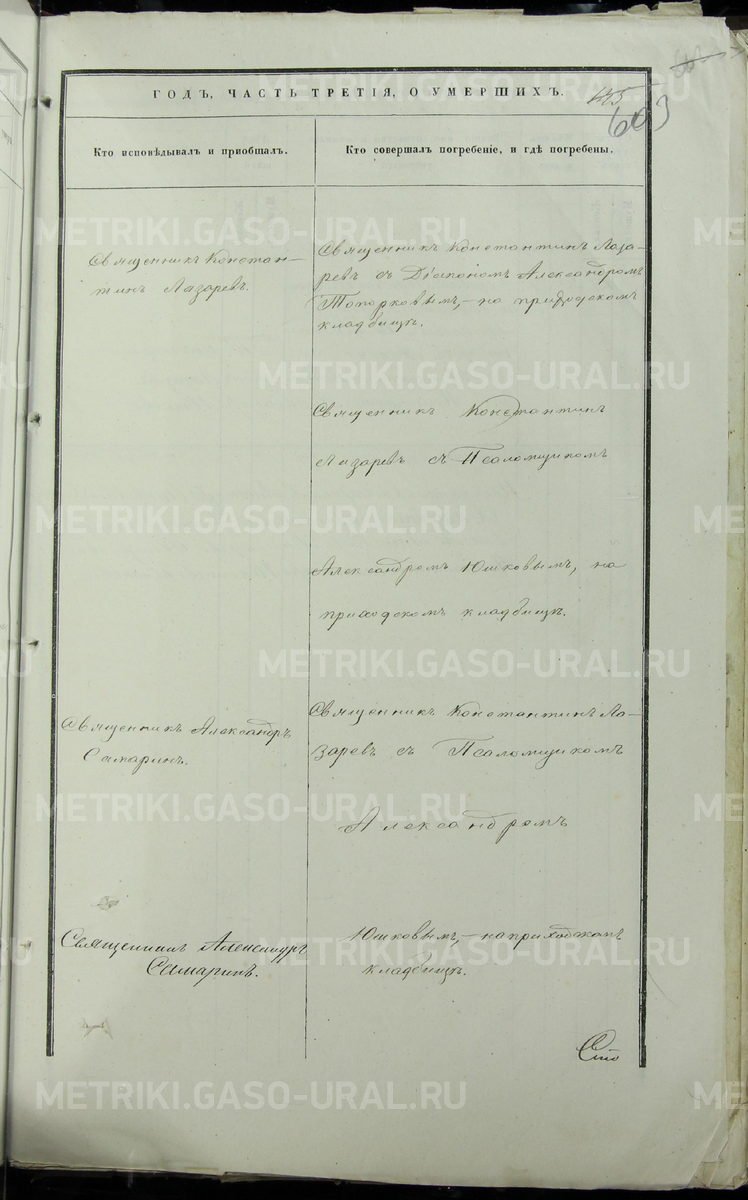 ГОДЪ, ЧАСТЬ ТРЕТІЯ, О УМЕРШИХЪ.
603
Кто исповѣдывалъ и пріобщалъ.
Кто совершалъ погребеніе, и гдѣ погребены.
Священникъ Констан-
тинъ Лазаревъ.
Священникъ Константинъ Лаза-
ревъ съ Діакономъ Александромъ
Топорковымъ,- на приходскомъ
кладбищѣ.
Священникъ Константинъ
Лазаревъ съ Псаломщикомъ
Александромъ Юшковымъ, на
приходскомъ кладбищѣ.
Священникъ Александръ
Самаринъ.
Священникъ Константинъ Ла-
заревъ съ Псаломщикомъ
Александромъ
Священникъ Александръ
Самаринъ.
Юшковымъ,- на приходскомъ
кладбищѣ.
METRIKI.GASO-URAL.RU